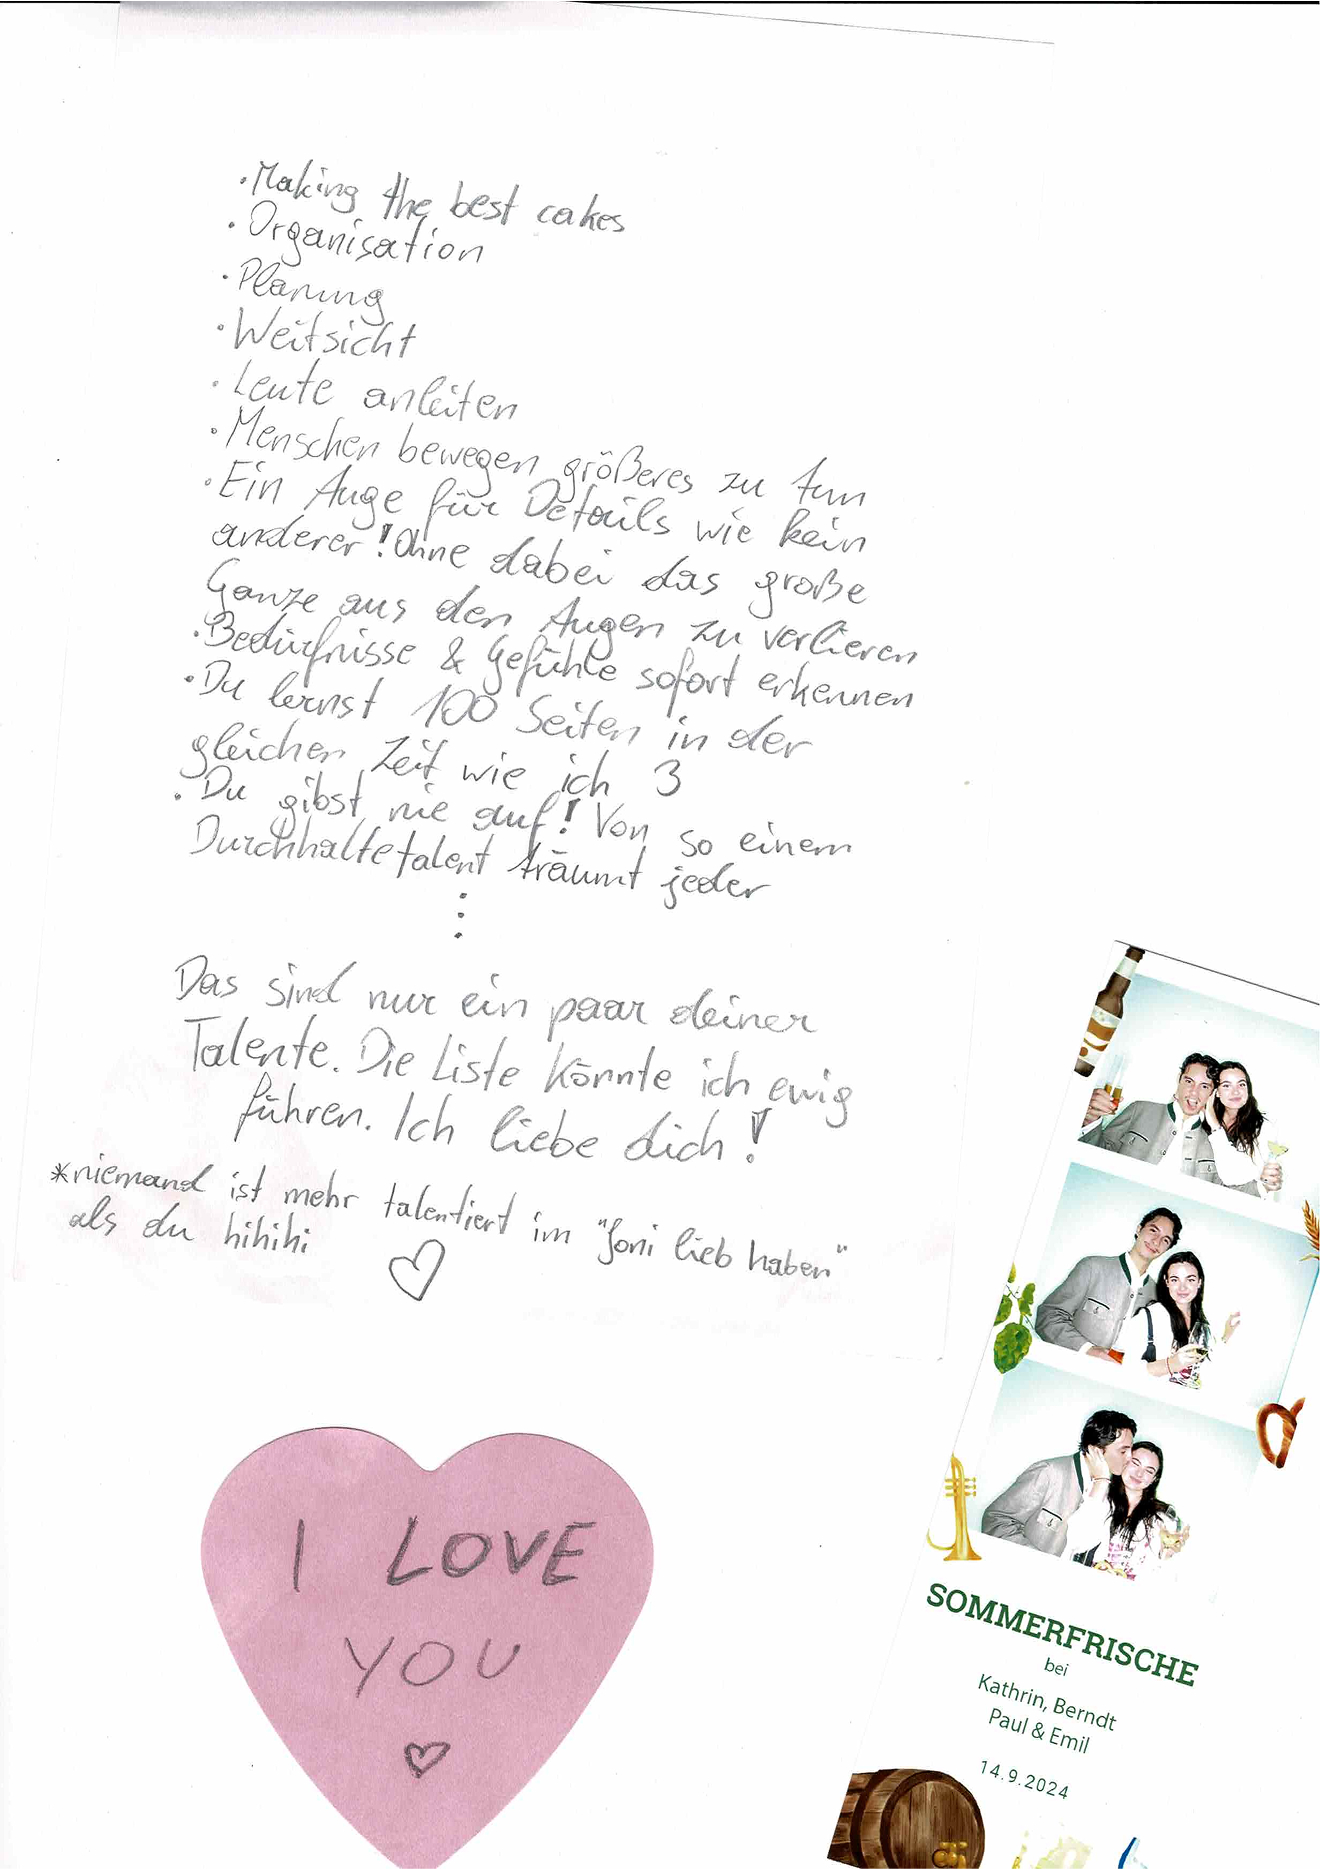 · Making the best cakes
· Organisation
· Planung
· Weitsicht
· Leute anleiten
· Menschen bewegen größeres zu tun
· Ein Auge für Details wie kein
anderer! Ohne dabei das große
Ganze aus den Augen zu verlieren
· Bedürfnisse & Gefühle sofort erkennen
· Du lernst 100 Seiten in der
gleichen Zeit wie ich 3
· Du gibst nie auf! Von so einem
Durchhaltetalent träumt jeder
⋮
Das sind nur ein paar deiner
Talente. Die Liste könnte ich ewig
führen. Ich liebe dich!
*niemand ist mehr talentiert im "Joni lieb haben"
als du hihihi ♡
I LOVE
YOU
♡
SOMMERFRISCHE
bei
Kathrin, Berndt
Paul & Emil
14.9.2024